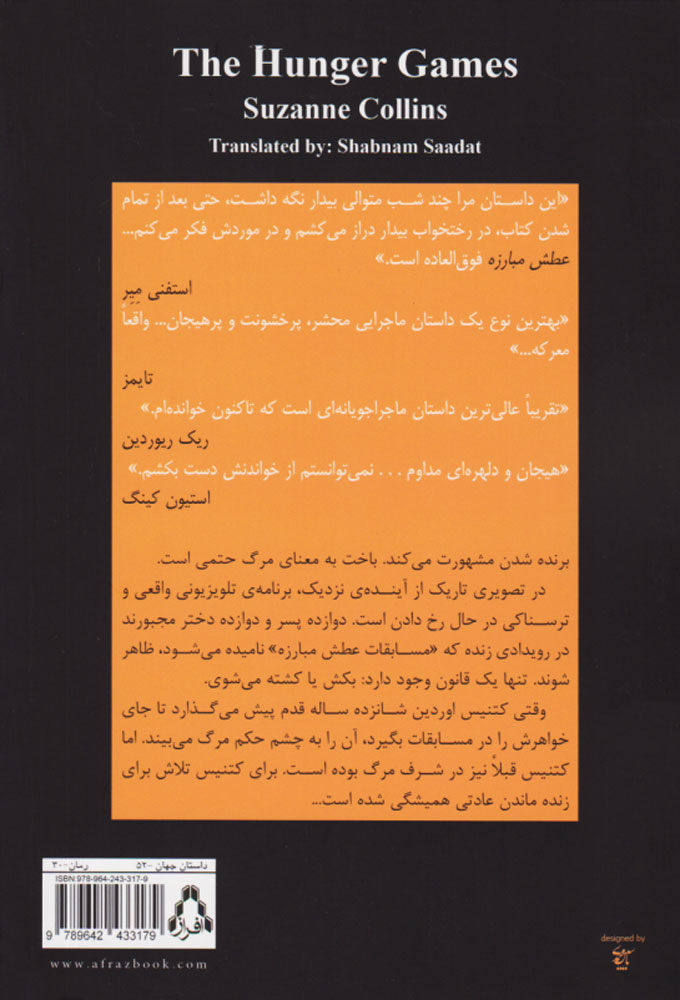 The Hunger Games
Suzanne Collins
Translated by: Shabnam Saadat
«این داستان مرا چند شب متوالی بیدار نگه داشت، حتی بعد از تمام
شدن کتاب، در رختخواب بیدار دراز می‌کشم و در موردش فکر می‌کنم...
عطش مبارزه فوق‌العاده است.»
استفنی مِیِر
«بهترین نوع یک داستان ماجرایی محشر، پرخشونت و پرهیجان... واقعاً
معرکه...»
تایمز
«تقریباً عالی‌ترین داستان ماجراجویانه‌ای است که تاکنون خوانده‌ام.»
ریک ریوردین
«هیجان و دلهره‌ای مداوم . . . نمی‌توانستم از خواندنش دست بکشم.»
استیون کینگ
برنده شدن مشهورت می‌کند. باخت به معنای مرگ حتمی است.
در تصویری تاریک از آینده‌ی نزدیک، برنامه‌ی تلویزیونی واقعی و
ترسناکی در حال رخ دادن است. دوازده پسر و دوازده دختر مجبورند
در رویدادی زنده که «مسابقات عطش مبارزه» نامیده می‌شود، ظاهر
شوند. تنها یک قانون وجود دارد: بکش یا کشته می‌شوی.
وقتی کتنیس اوردین شانزده ساله قدم پیش می‌گذارد تا جای
خواهرش را در مسابقات بگیرد، آن را به چشم حکم مرگ می‌بیند. اما
کتنیس قبلاً نیز در شرف مرگ بوده است. برای کتنیس تلاش برای
زنده ماندن عادتی همیشگی شده است...
داستان جهان -۵۲ رمان-۳۰
ISBN:978-964-243-317-9
افراز
9 789642 433179
www.afrazbook.com
designed by